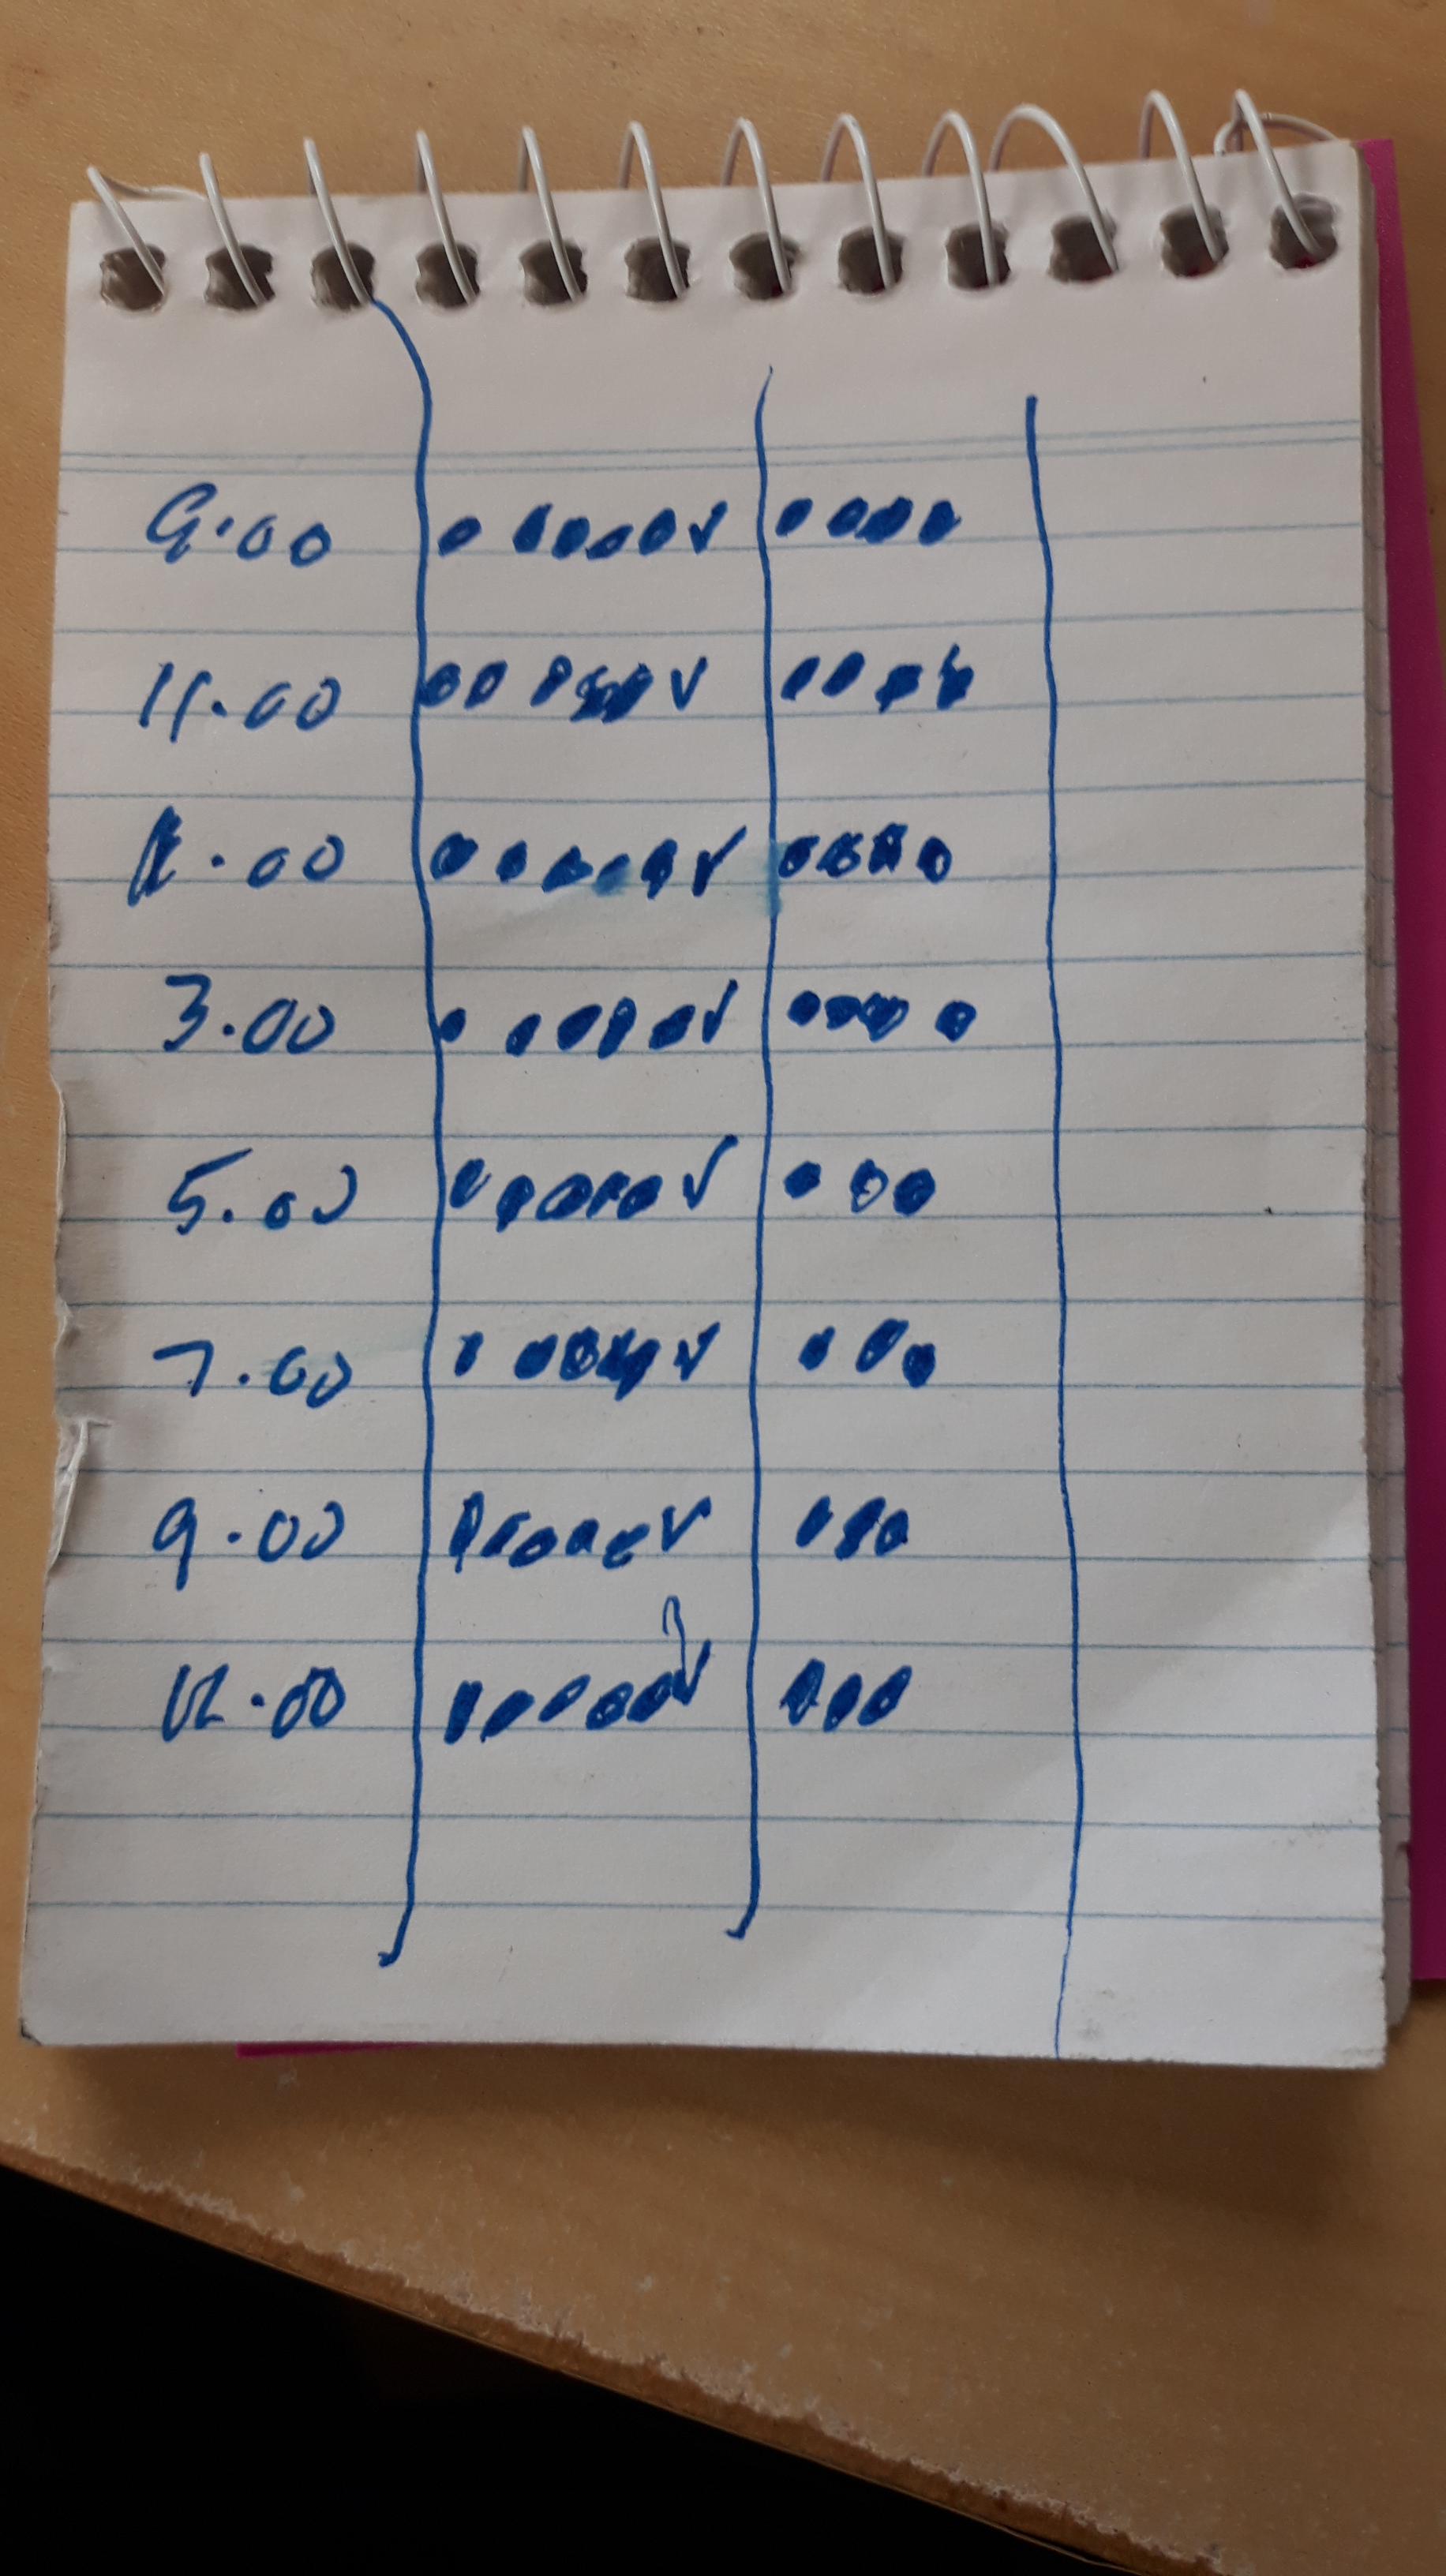 9.00
11.00
1.00
3.00
5.00
7.00
9.00
12.00